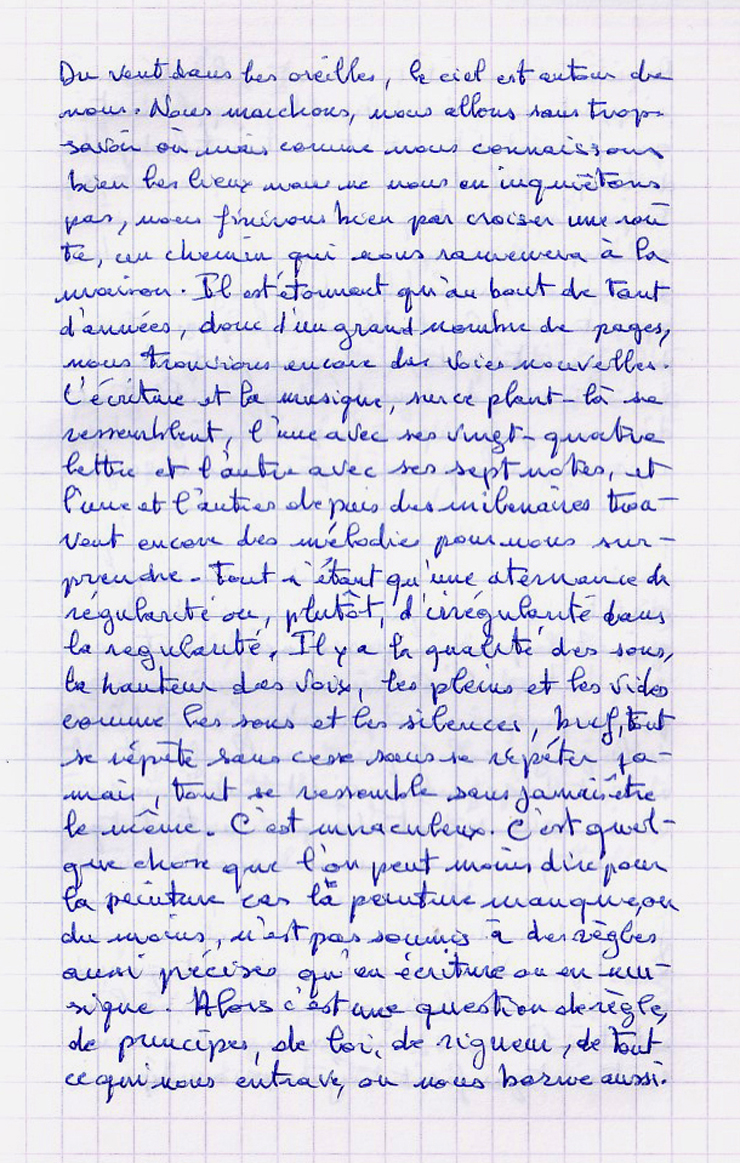 Du vent dans les oreilles, le ciel est autour de
nous. Nous marchons, nous allons sans trop
savoir où mais comme nous connaissons
bien les lieux nous ne nous en inquiétons
pas, nous finirons bien par croiser une rou
te, un chemin qui nous ramenera à la
maison. Il est étonnant qu'au bout de tant
d'années, donc d'un grand nombre de pages,
nous trouvions encore des voies nouvelles.
L'écriture et la musique, sur ce plant-là se
ressemblent, l'une avec ses vingt-quatre
lettre et l'autre avec ses sept notes, et
l'une et l'autres depuis des milenaires trou-
vent encore des mélodies pour nous sur-
prendre. Tout n'étant qu'une aternance de
régularité ou, plutôt, d'irrégularité dans
la regularité. Il y a la qualité des sons,
la hauteur des voix, les pleins et les vides
comme les sons et les silences, bref, tout
se répète sans cesse sans se répéter ja-
mais, tout se ressemble sans jamais être
le même. C'est miraculeux. C'est quel-
que chose que l'on peut moins dire pour
la peinture car là peinture manque, ou
du moins, n'est pas soumis à des règles
aussi précises qu'en écriture ou en mu-
sique. Alors c'est une question de règle,
de principes, de loi, de rigueur, de tout
ce qui nous entrave, ou nous borne aussi.